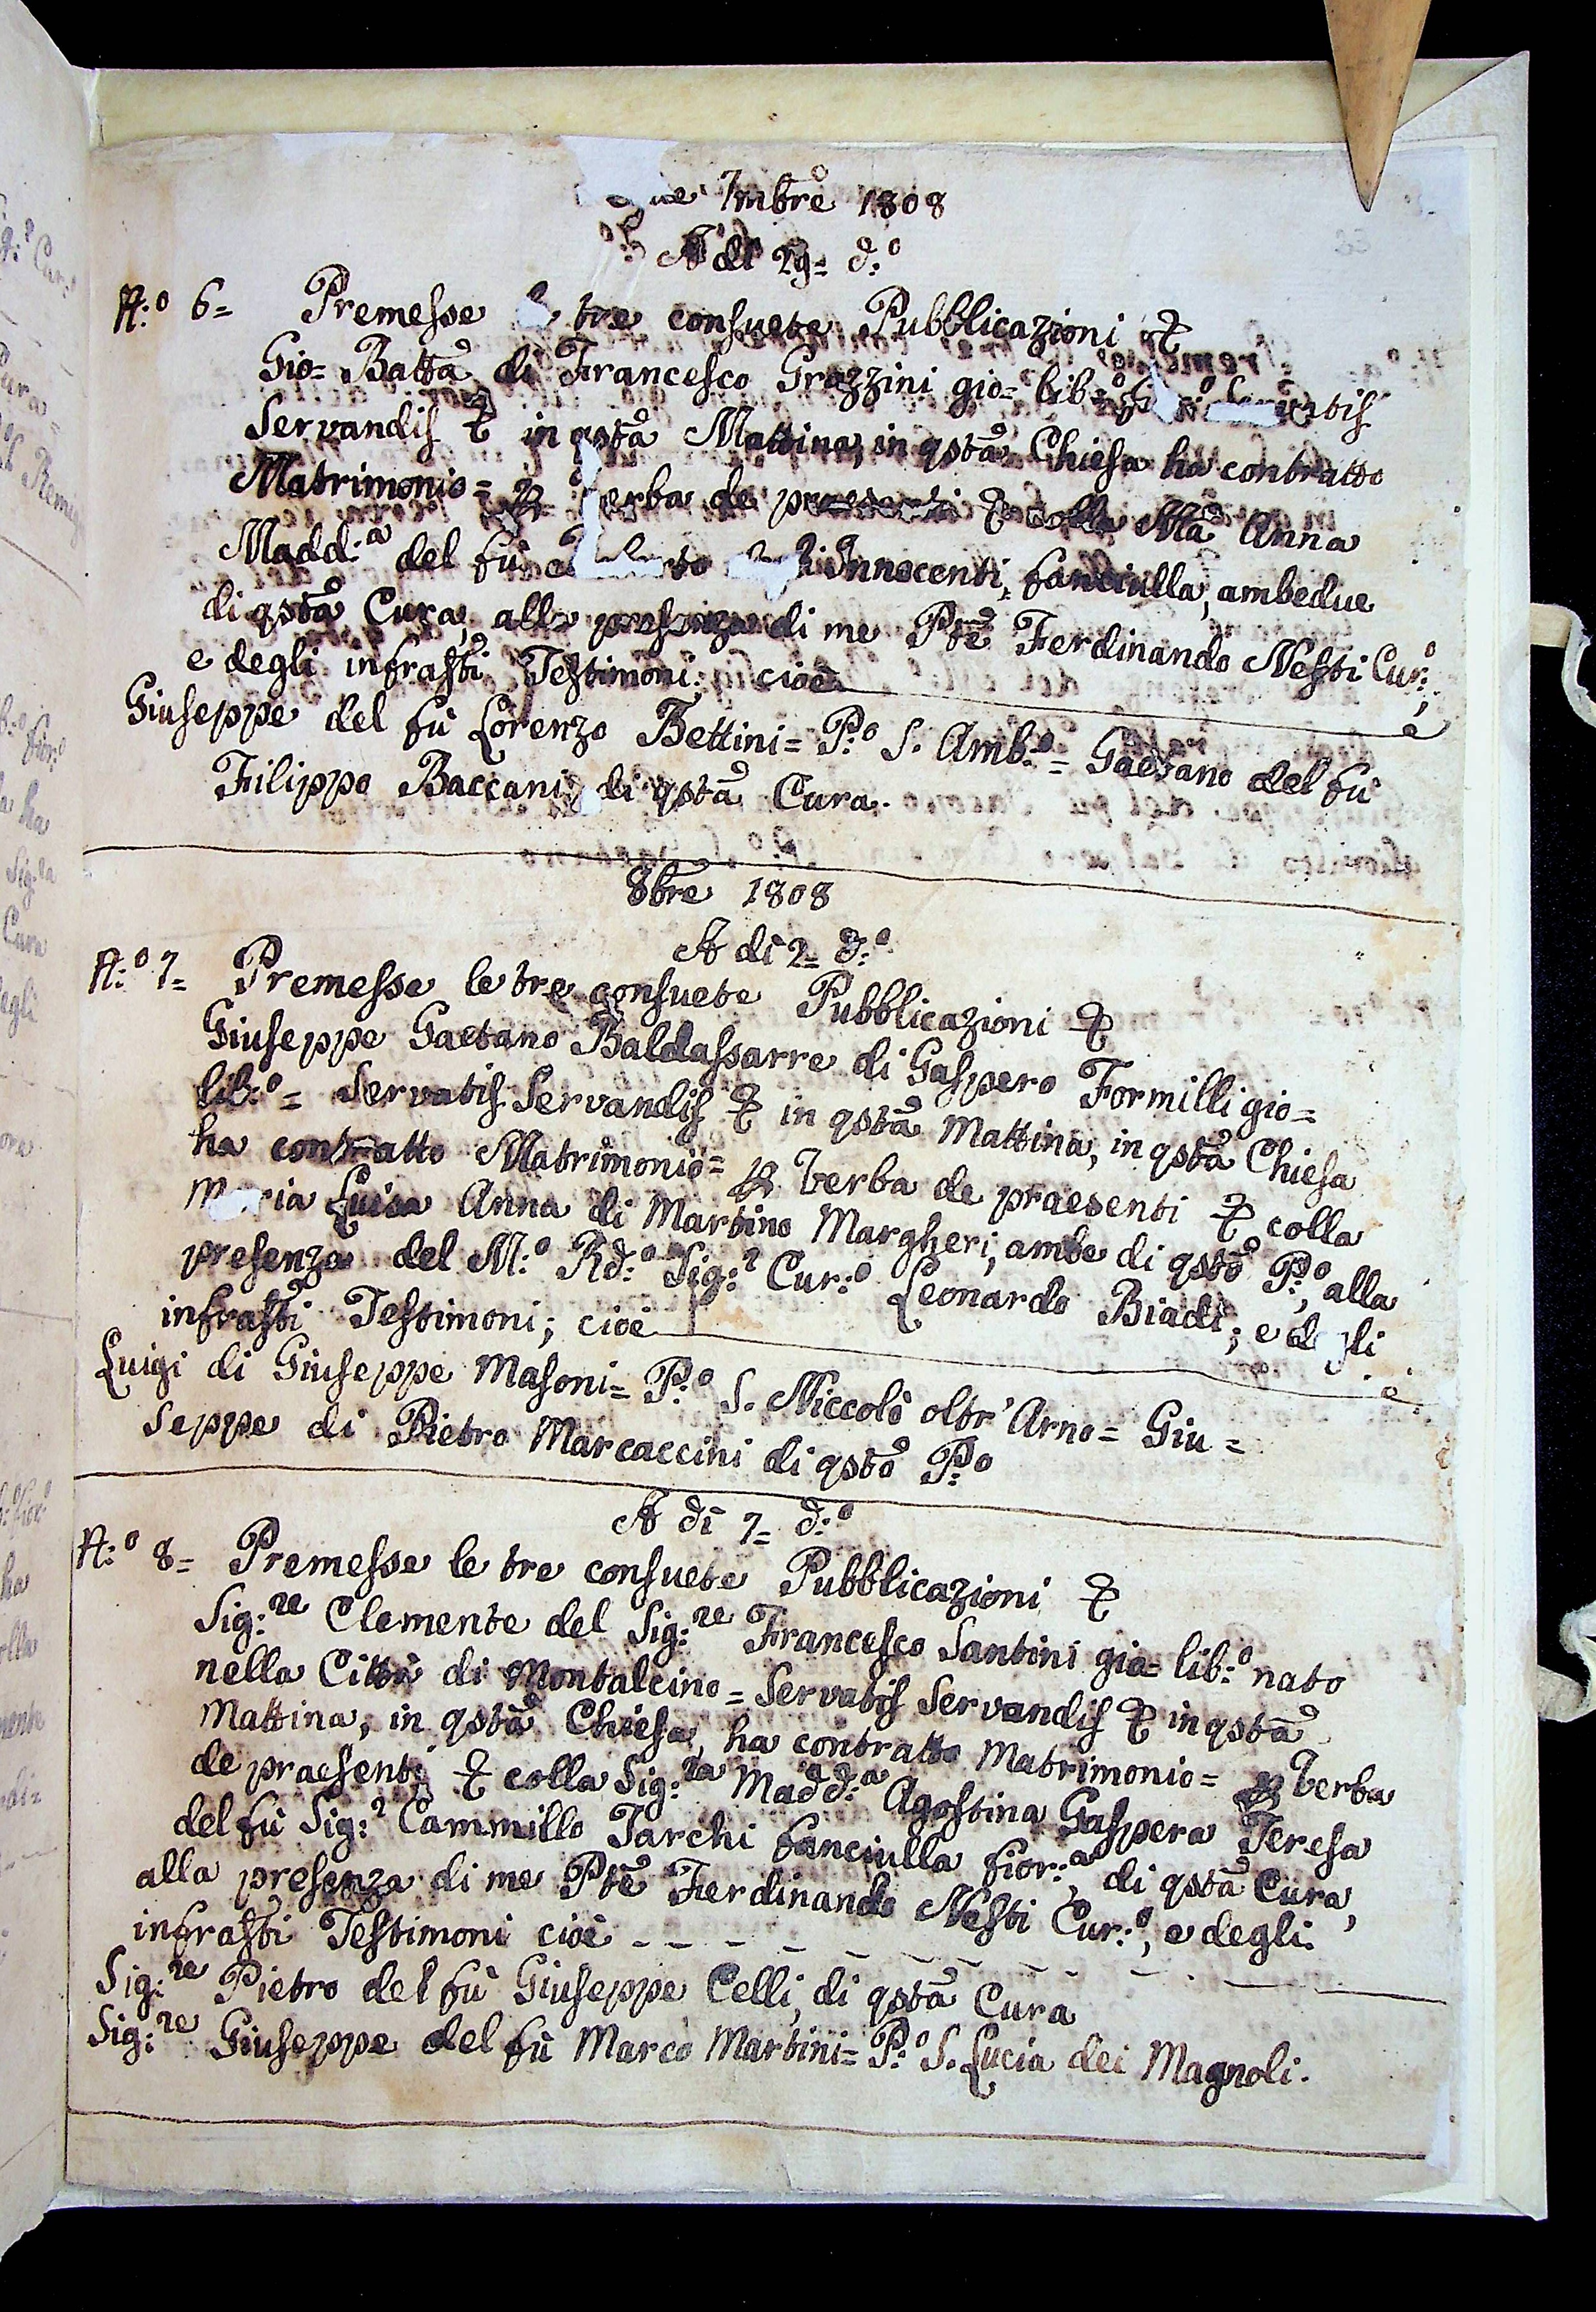 7mbre 1808
A di 29= d:o
N:o 6= Premesse tre consuete Pubblicazioni &
Gio= Batta di Francesco Grazzini gio= lib=o
Servandis & in qsta Mattina, in qsta Chiesa ha contratto
Matrimonio= p verba de praesenti & colla Ma Anna
Madd:a del fù Innocenti, fanciulla, ambedue
di qsta Cura, alla presenza di me Pte Ferdinando Nesti Cur:o,
e degli infrasti Testimoni; cioè
Giuseppe del fù Lorenzo Bettini= P:o S. Amb:o= Gaetano del fù
Filippo Baccani di qsta Cura.
8bre 1808
A di 2= d:o
N:o 7= Premesse le tre consuete Pubblicazioni &
Giuseppe Gaetano Baldassarre di Gaspero Formilli gio=
lib:o= Servatis Servandis & in qsta Mattina, in qsta Chiesa
ha contratto Matrimonio= p Verba de praesenti & colla
Maria Luisa Anna di Martino Margheri, ambe di qsto P:o, alla
presenza del M:o Rd:o Sig:r Cur:o Leonardo Biadi; e degli
infrasti Testimoni; cioè
Luigi di Giuseppe Masoni= P:o S. Niccolò oltr'Arno= Giu=
seppe di Pietro Marcaccini di qsto P:o
A di 7= d:o
N:o 8= Premesse le tre consuete Pubblicazioni &
Sig:re Clemente del Sig:re Francesco Santini gio= lib:o nato
nella Città di Montalcino= Servatis Servandis & in qsta
Mattina, in qsta Chiesa, ha contratto Matrimonio= p Verba
de praesenti & colla Sig:ra Madd:a Agostina Gaspera Teresa
del fù Sig:r Cammillo Tarchi fanciulla fior:a, di qsta Cura,
alla presenza di me Pte Ferdinando Nesti Cur:o, e degli
infrasti Testimoni cioè
Sig:re Pietro del fù Giuseppe Celli, di qsta Cura
Sig:re Giuseppe del fù Marco Martini= P:o S. Lucia dei Magnoli.